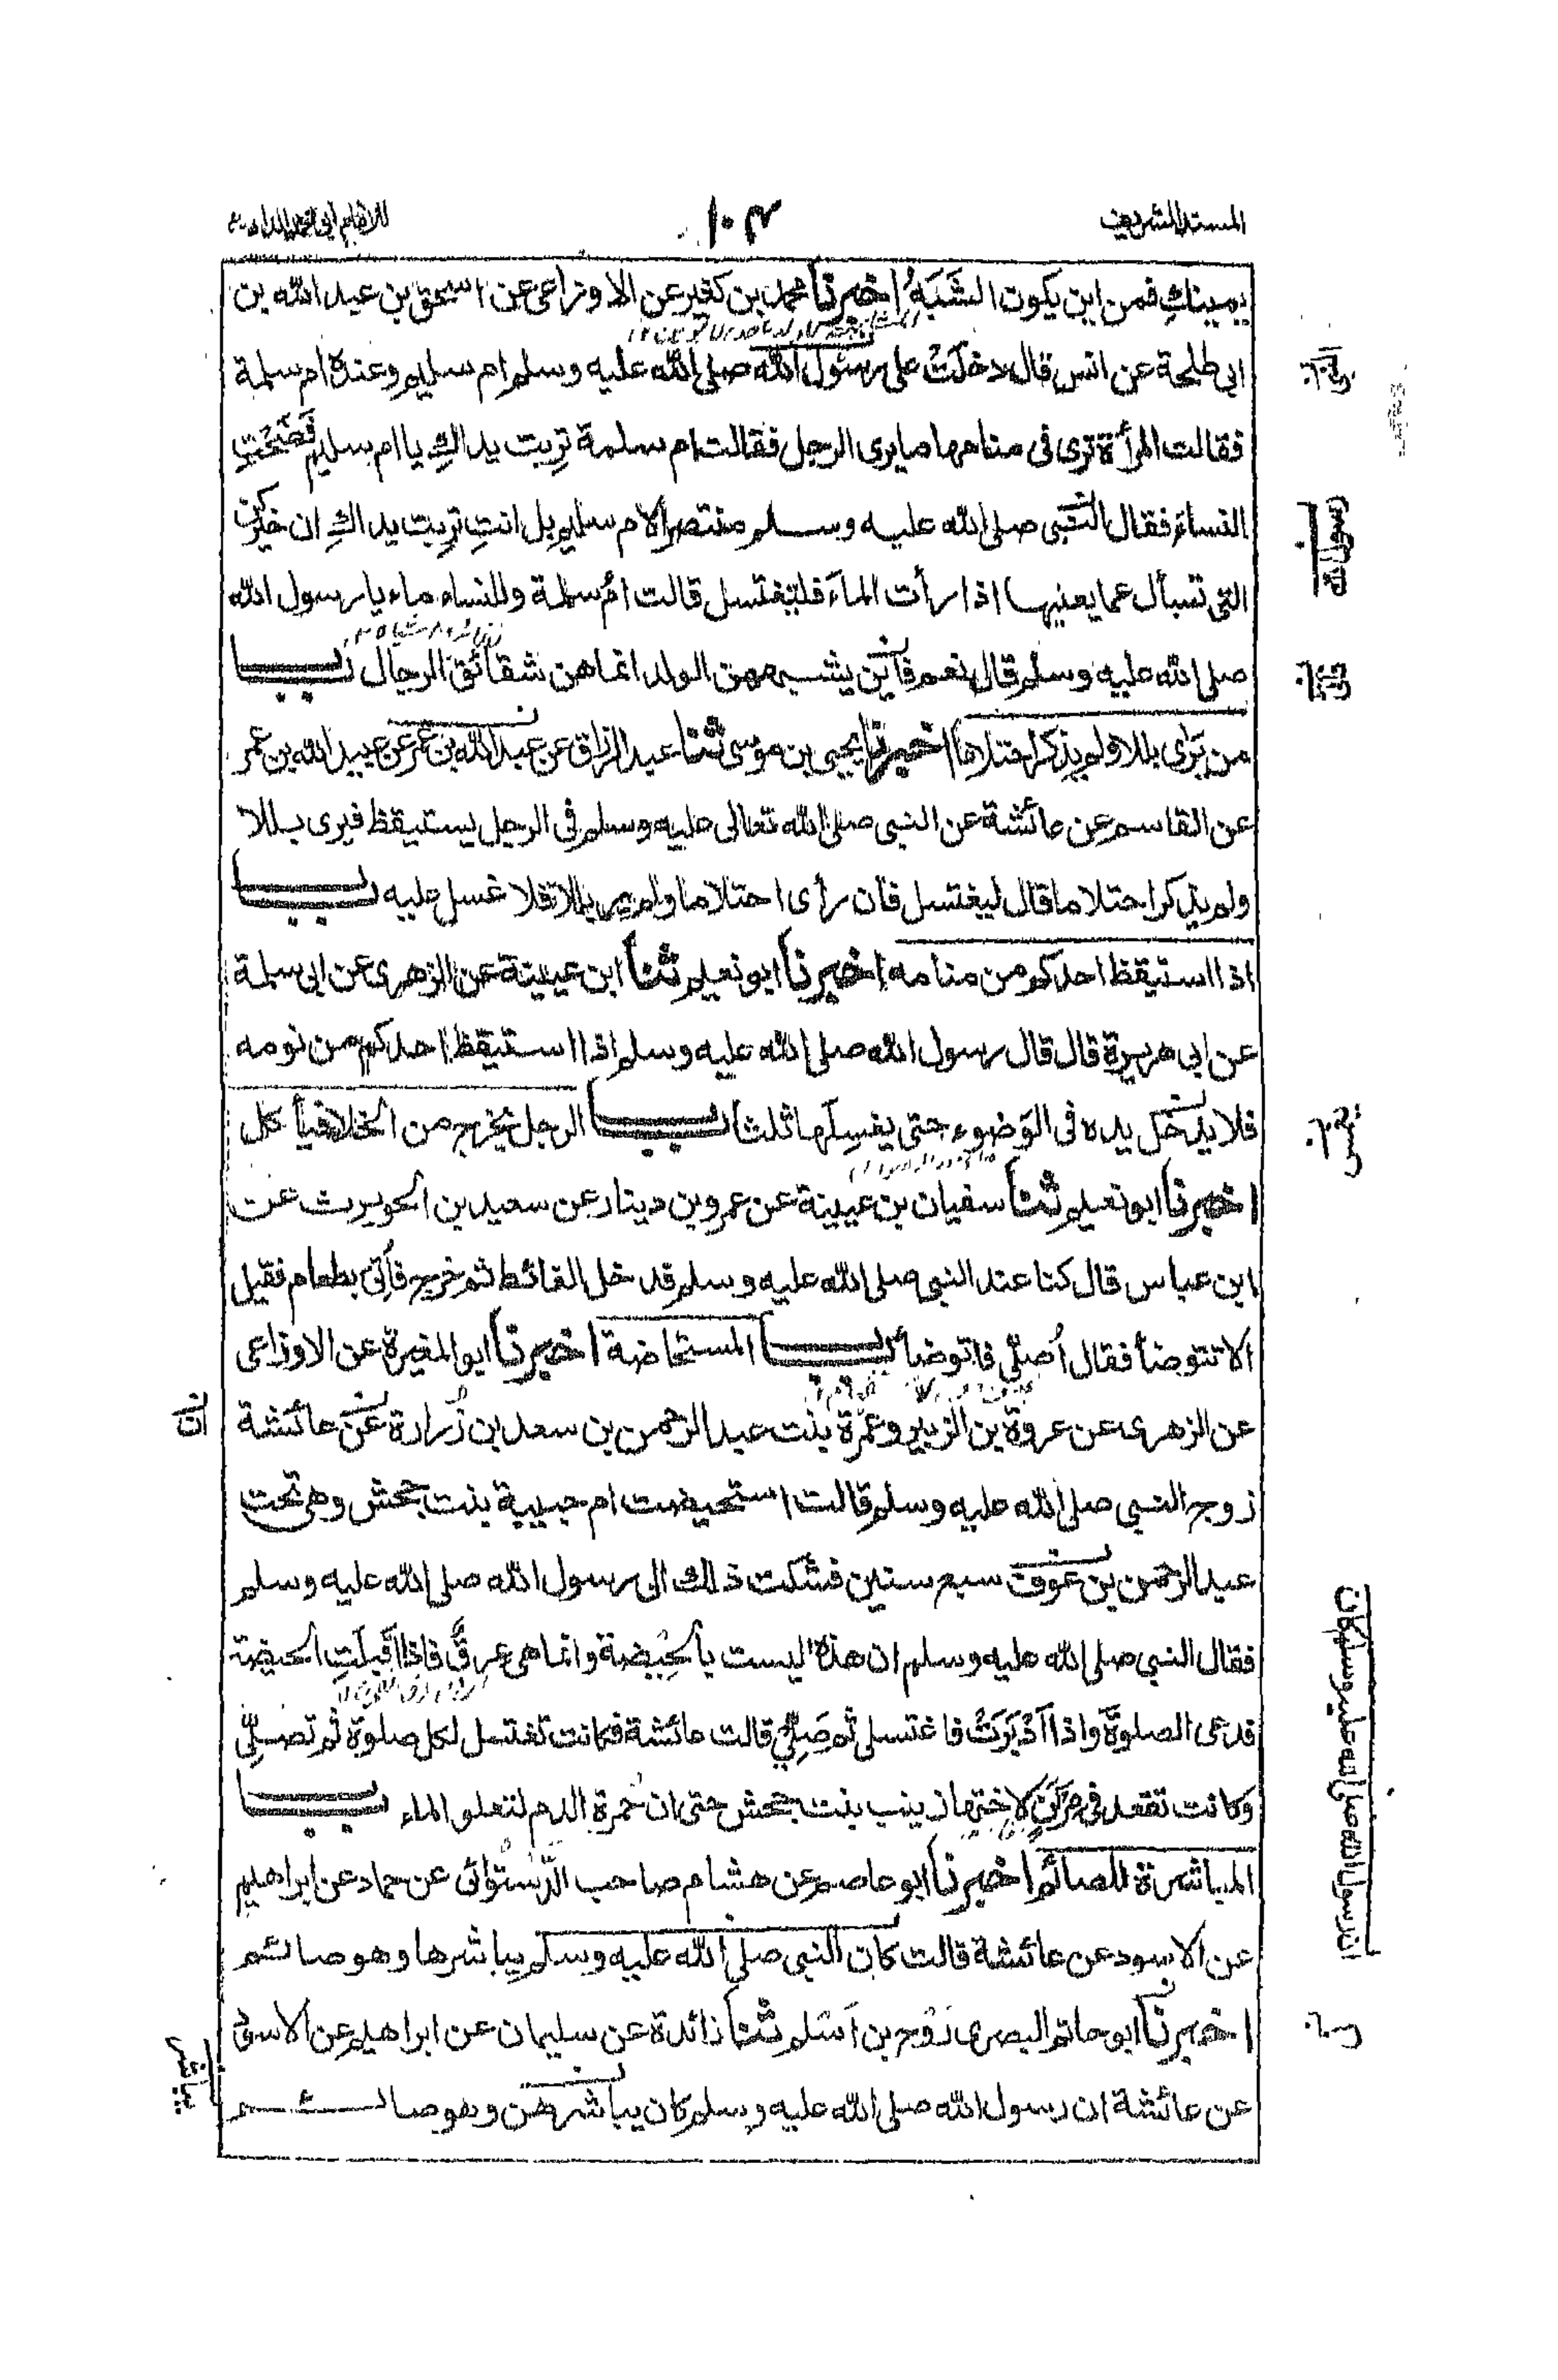 المسند الشريف
١٠٣
للامام ابي محمد الدارمي
يمينكِ فمن اين يكون الشَبَهُ اخبرنا محمد بن كثير عن الاوزاعي عن اسحق بن عبد الله بن
ابى طلحة عن انس قال دخلَتْ على رسول الله صلى الله عليه وسلم ام سليم وعنده ام سلمة
فقالت المرأة ترى فى منامها ما يرى الرجل فقالت ام سلمة تَرِبت يداكِ يا ام سليم فَضَحْتِ
النساء فقال النبى صلى الله عليه وسلم منتصرا لام سليم بل انتِ تربت يداكِ ان خيركن
التى تسأل عما يعنيها اذا رأت الماءَ فلتغتسل قالت امُ سلمة وللنساء ماء يا رسول الله
صلى الله عليه وسلم قال نعم فأين يشبههن الولد انما هن شقائق الرجال باب
من يَرَى بللا ولم يذكر احتلاما اخبرنا يحيى بن موسى ثنا عبد الرزاق عن عبد الله بن عمر عن عبيد الله بن عمر
عن القاسم عن عائشة عن النبى صلى الله تعالى عليه وسلم فى الرجل يستيقظ فيرى بللا
ولم يذكر احتلاما قال ليغتسل فان رأى احتلاما ولم ير بللا فلا غسل عليه باب
اذا استيقظ احدكم من منامه اخبرنا ابو نعيم ثنا ابن عيينة عن الزهرى عن ابى سلمة
عن ابى هريرة قال قال رسول الله صلى الله عليه وسلم اذا استيقظ احدكم من نومه
فلا يدخل يده فى الوَضوء حتى يغسلها ثلثا باب الرجل يخرج من الخلا فيأكل
اخبرنا ابو نعيم ثنا سفيان بن عيينة عن عمرو بن دينار عن سعيد بن الحويرث عن
ابن عباس قال كنا عند النبى صلى الله عليه وسلم قد خل الغائط ثم خرج فأُتى بطعام فقيل
الا تتوضأ فقال أُصلّى فاتوضأ باب المستحاضة اخبرنا ابو المغيرة عن الاوزاعى
عن الزهرى عن عروة بن الزبير وعمرة بنت عبد الرحمن بن سعد بن زُرارة عن عائشة
ان
زوج النبى صلى الله عليه وسلم قالت استحيضت ام حبيبة بنت جحش وهى تحت
عبد الرحمن بن عوف سبع سنين فشكت ذلك الى رسول الله صلى الله عليه وسلم
فقال النبى صلى الله عليه وسلم ان هذه ليست بالحَيْضة وانما هى عِرقٌ فاذا اَقبلَتِ الحيضة
فدعى الصلوةَ واذا اَدْبَرَتْ فاغتسلى ثم صَلِّى قالت عائشة فكانت تغتسل لكل صلوة ثم تصلِّى
وكانت تقعد فى مِركَنٍ لاختها زينب بنت جحش حتى ان حُمرة الدم لتعلو الماء باب
المباشرة للصائم اخبرنا ابو عاصم عن هشام صاحب الدَّستُوائى عن حماد عن ابراهيم
عن الاسود عن عائشة قالت كان النبى صلى الله عليه وسلم يباشرها وهو صائم
ان رسول الله صلى الله عليه وسلم كان
اخبرنا ابو حاتم البصرى رَوْح بن اَسْلم ثنا زائدة عن سليمان عن ابراهيم عن الاسود
عن عائشة ان رسول الله صلى الله عليه وسلم كان يباشرهن وهو صائم
يباشر